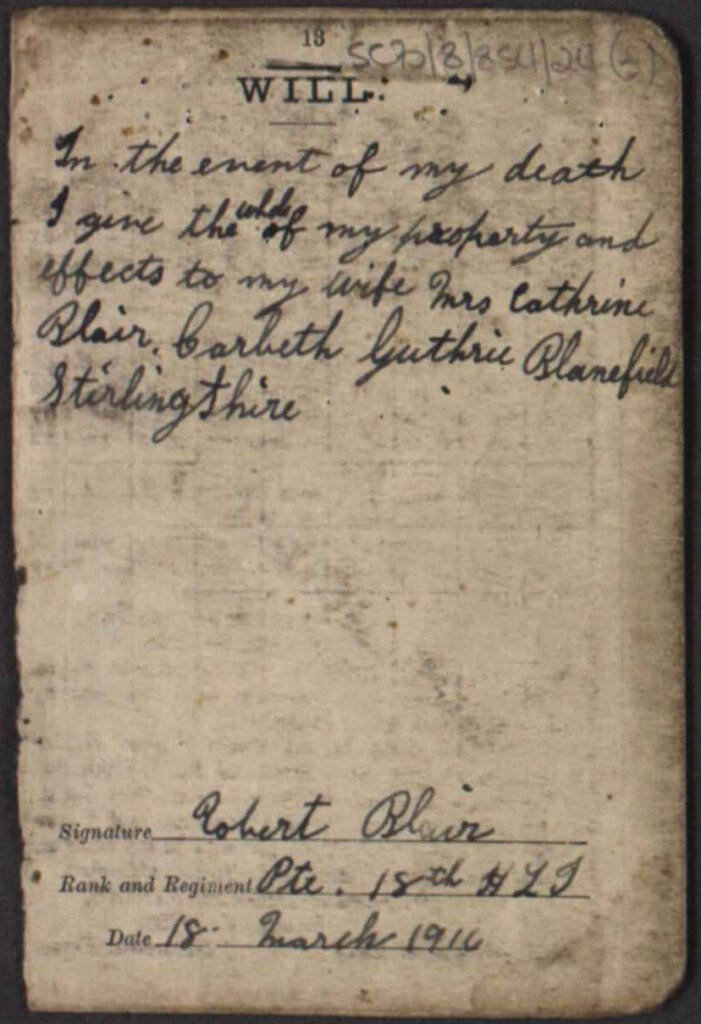 13
SC70/8/854/24 (3)
WILL.
In the event of my death
I give the whole of my property and
effects to my wife Mrs Cathrine
Blair, Carbeth Guthrie Blanefield
Stirlingshire
Signature Robert Blair
Rank and Regiment Pte. 18th H L I
Date 18 March 1916